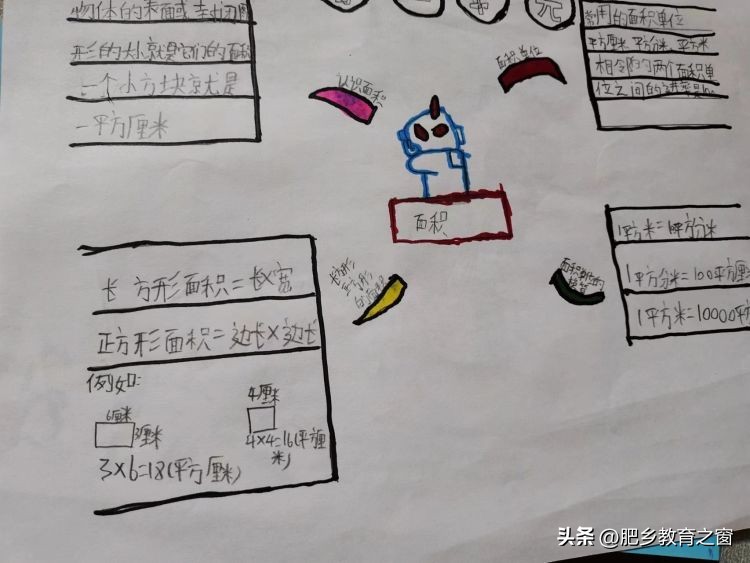 物体的表面或封闭图
形的大小就是它们的面积
一个小方块就是
一平方厘米
元
常用的面积单位
平方厘米 平方分米 平方米
相邻的两个面积单
位之间的进率是
认识面积
面积单位
面积
长方形
正方形
的面积
长方形面积=长×宽
正方形面积=边长×边长
例如:
6厘米
3厘米
3×6=18(平方厘米)
4厘米
4×4=16(平方厘
米)
1平方分米=100平方厘
1平方米=10000平方
头条 @肥乡教育之窗